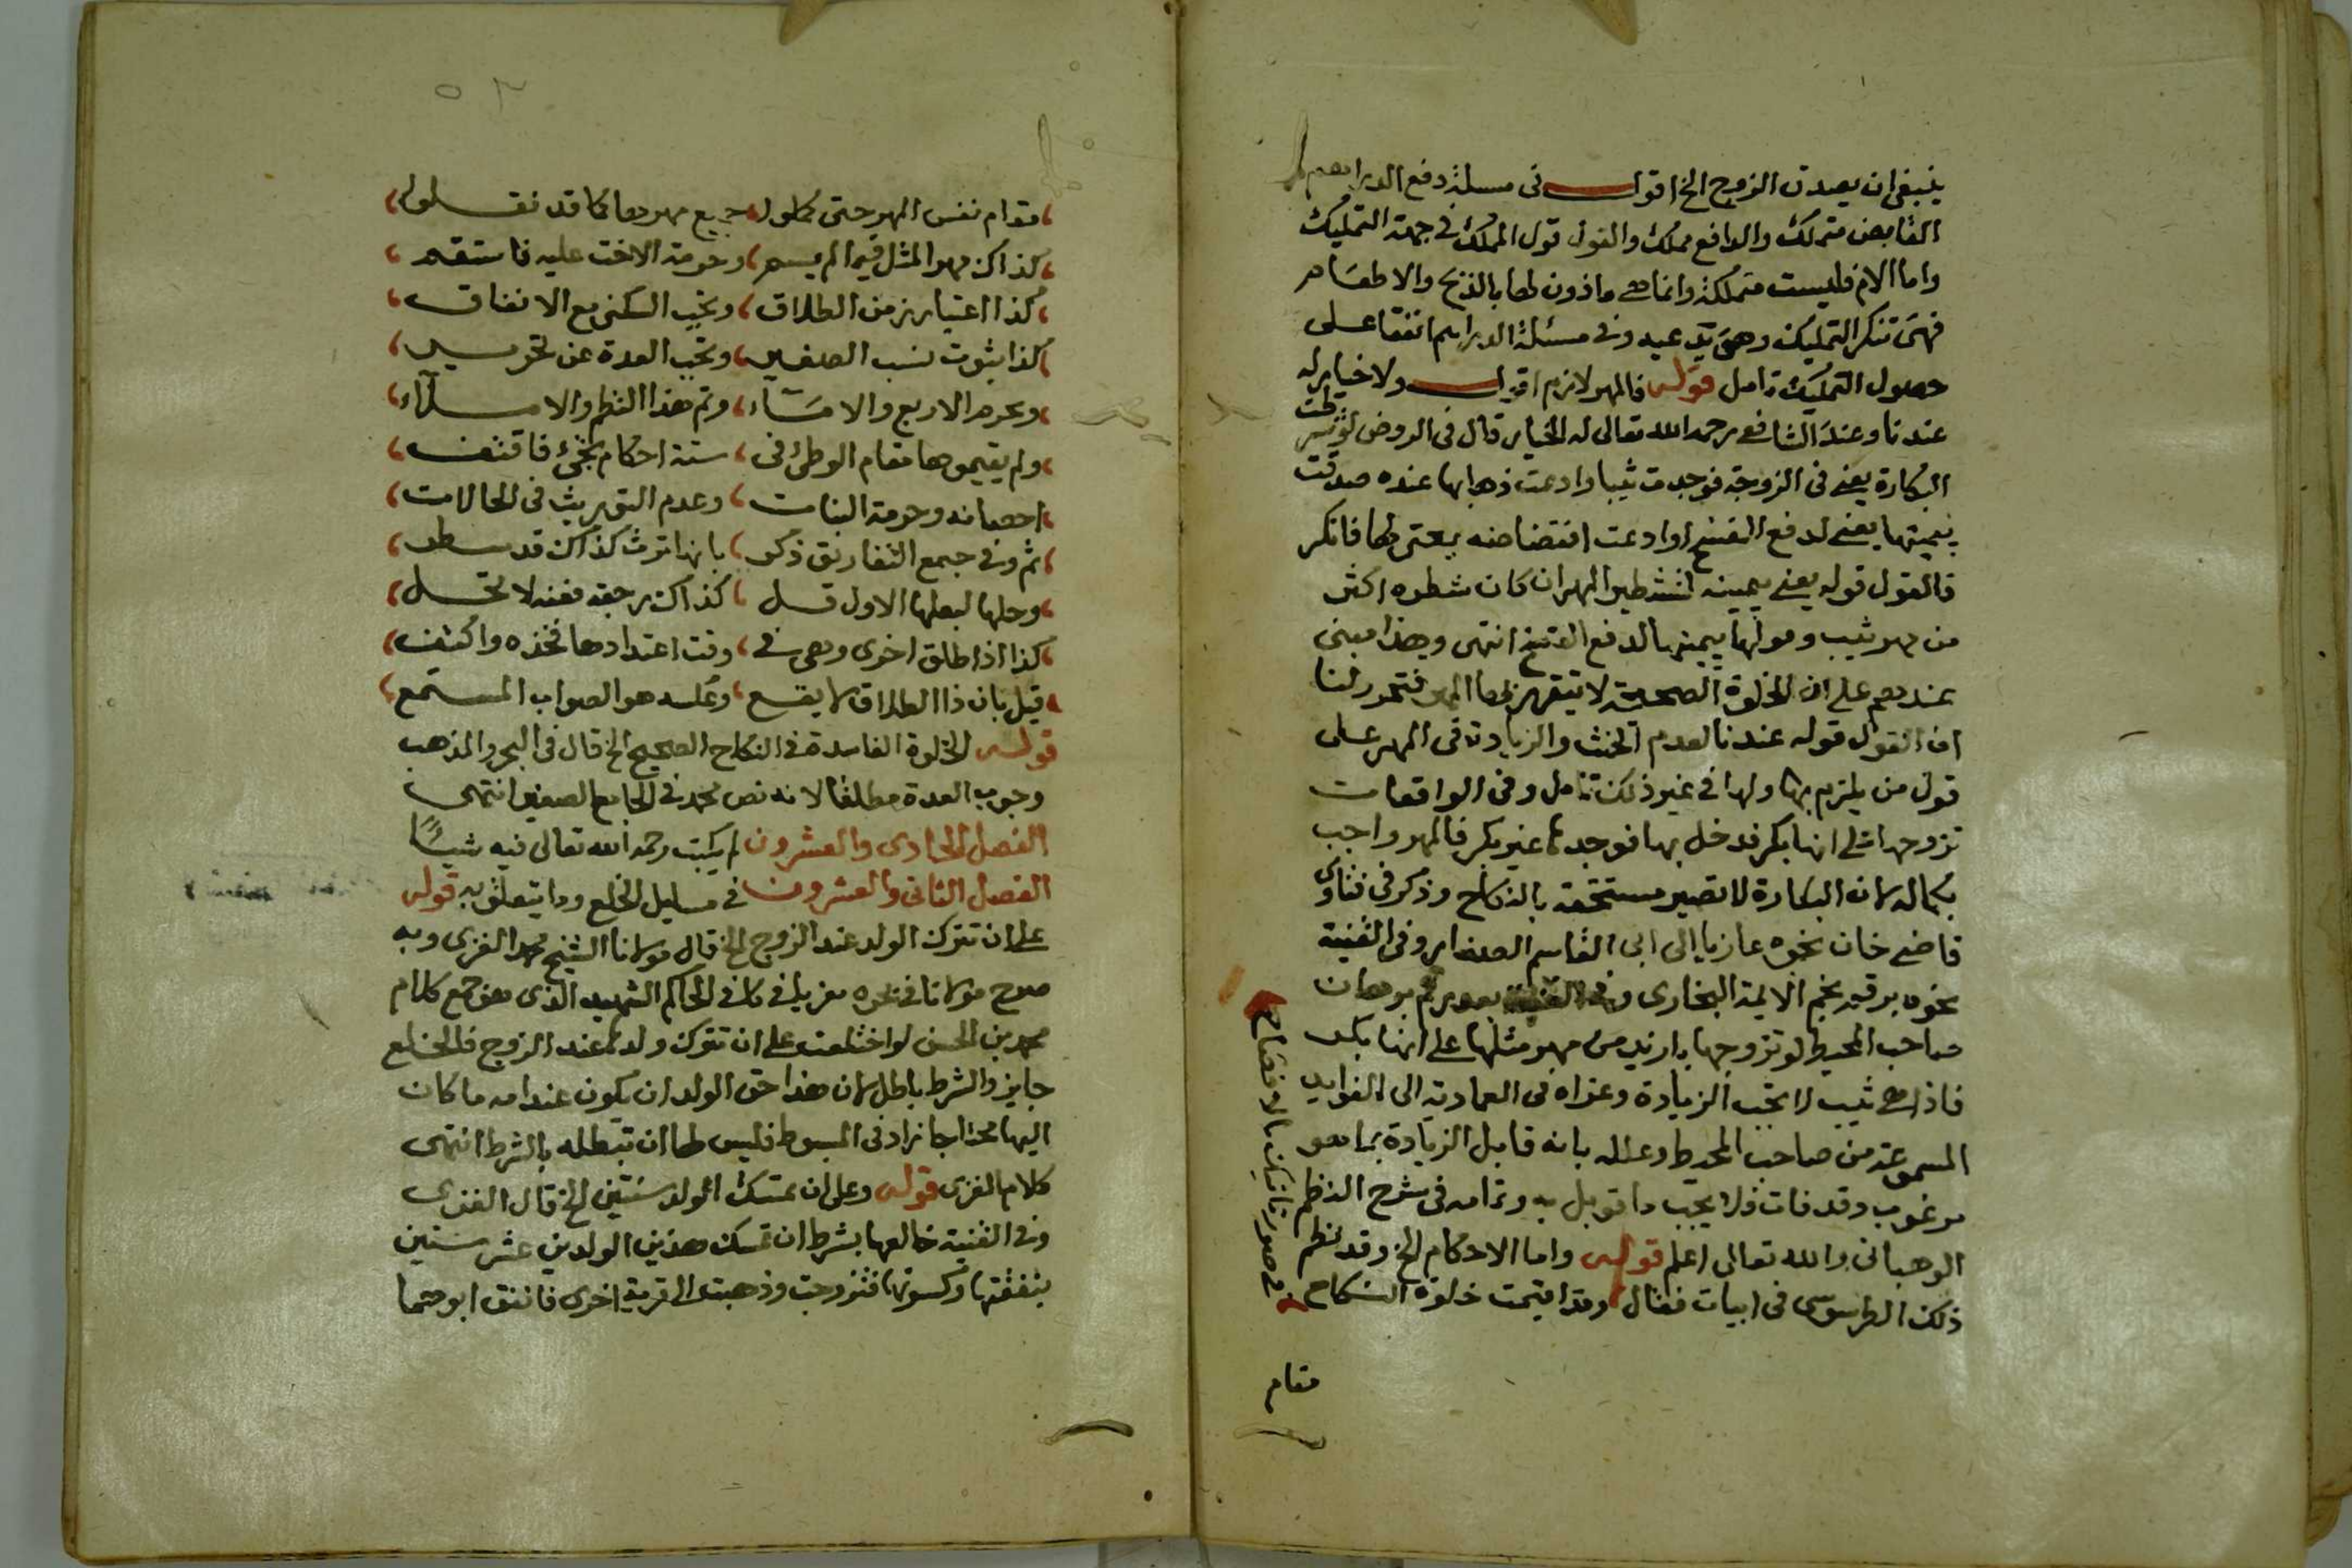 ينبغي ان يصدق الزوج الخ اقول في مسئلة دفع الدراهم
القابض متملك والدافع مملك والقول قول المملك في جهة التمليك
واما الام فليست متملكة وانما هي ماذون لها بالذبح والاطعام
فهي تنكر التمليك وهي وفي مسئلة الدراهم اتفقا على
حصول التمليك تامل قوله فالمهر لازم اقول ولا خيار له
عندنا وعند الشافعي رحمه الله تعالى له الخيار قال في الروض لو شرطت
البكارة يعني في الزوجة فوجدت ثيبا وادعت ذهابها عنده صدقت
بيمينها يعني لدفع الفسخ او ادعت افتضاضه لها فانكر
فالقول قوله يعني بيمينه لتشطير المهر ان كان شطره اكثر
من مهر ثيب وقولها بيمينها لدفع الفسخ انتهى وهذا مبني
عندهم على ان الخلوة الصحيحة لا يتقرر بها المهر فتحرر لنا
ان القول قوله عندنا لعدم الخنث والزيادة في المهر على
قول من يلزم بها ولها في غير ذلك تامل وفي الواقعات
تزوجها على انها بكر فدخل بها فوجدها غير بكر فالمهر واجب
بكماله لان البكارة لا تصير مستحقة بالنكاح وذكر في فتاوى
قاضي خان نحوه عازيا الى ابي القاسم الصفار وفي القنية
نحوه برقم نجم الايمة البخاري برهان
صاحب المحيط لو تزوجها بازيد من مهر مثلها على انها بكر
فاذا هي ثيب لا تجب الزيادة وعزاه في العمادية الى الفوايد
المسموعة من صاحب المحيط وعلله بانه قابل الزيادة بما هو
مرغوب وقد فات فلا يجب ما قوبل به وتمامه في شرح النظم
الوهباني والله تعالى اعلم قوله واما الاحكام الخ وقد نظم
ذلك الطرسوسي في ابيات فقال وقد اقيمت خلوة النكاح
في صورة
مقام
٥٢
مقام نفس المهر حتى جميع مهرها كما قد نقلوا
كذاك مهر المثل فيما لم يسم وحرمة الاخت عليه فاستقم
كذا اعتبار زمن الطلاق وتجب السكنى مع الانفاق
كذا ثبوت نسب الصغير وتجب العدة عن تحرير
وتحرم الاربع والاماء وتم هذا النظم والاملاء
ولم يقيموها مقام الوطئ في ستة احكام تجئ فاقتف
احصانه وحرمة البنات وعدم التوريث في الحالات
ثم وفي جمع التفاريق ذكر بانها ترث كذاك قد سطر
وحلها لبعلها الاول قل كذاك رجعة فعنه لا تحل
كذا اذا طلق اخرى وهي في وقت اعتدادها فخذه واكتف
قيل بان ذا الطلاق لا يقع وعكسه هو الصواب المستمع
قوله الخلوة الفاسدة في النكاح الصحيح الخ قال في البحر والمذهب
وجوب العدة مطلقا لانه نص محمد في الجامع الصغير انتهى
الفصل الحادي والعشرون لم يكتب رحمه الله تعالى فيه شيئا
الفصل الثاني والعشرون في مسايل الخلع وما يتعلق به قوله
على ان تترك الولد عند الزوج الخ قال مولانا الشيخ محمد الغزي وبه
صرح مولانا في بحره معزيا في كافي الحاكم الشهيد الذي هو جمع كلام
محمد بن الحسن لو اختلعت على ان تترك ولدها عند الزوج فالخلع
جايز والشرط باطل لان هذا حق الولد ان يكون عند امه ما كان
اليها محتاجا زاد في المبسوط فليس لها ان تبطله بالشرط انتهى
كلام الغزي قوله وعلى ان تمسك الولد سنتين الخ قال الغزي
وفي القنية خالعها بشرط ان تمسك هذين الولدين عشر سنين
بنفقتها وكسوتها فتزوجت وذهبت الى قرية اخرى فانفق ابوهما